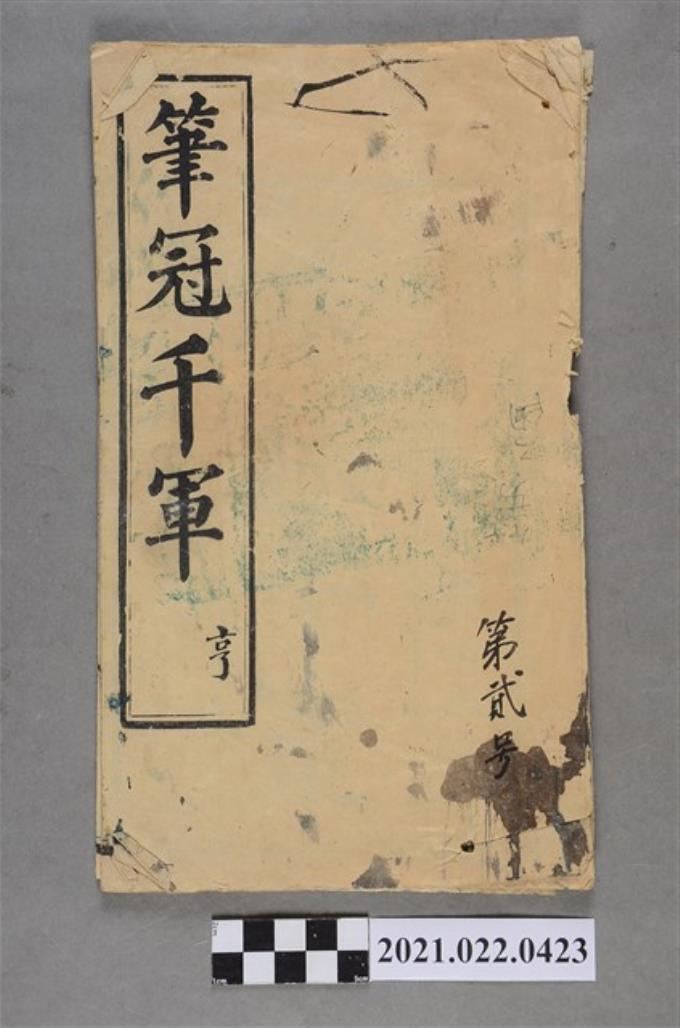 筆冠千軍
亨
第貳号
2021.022.0423